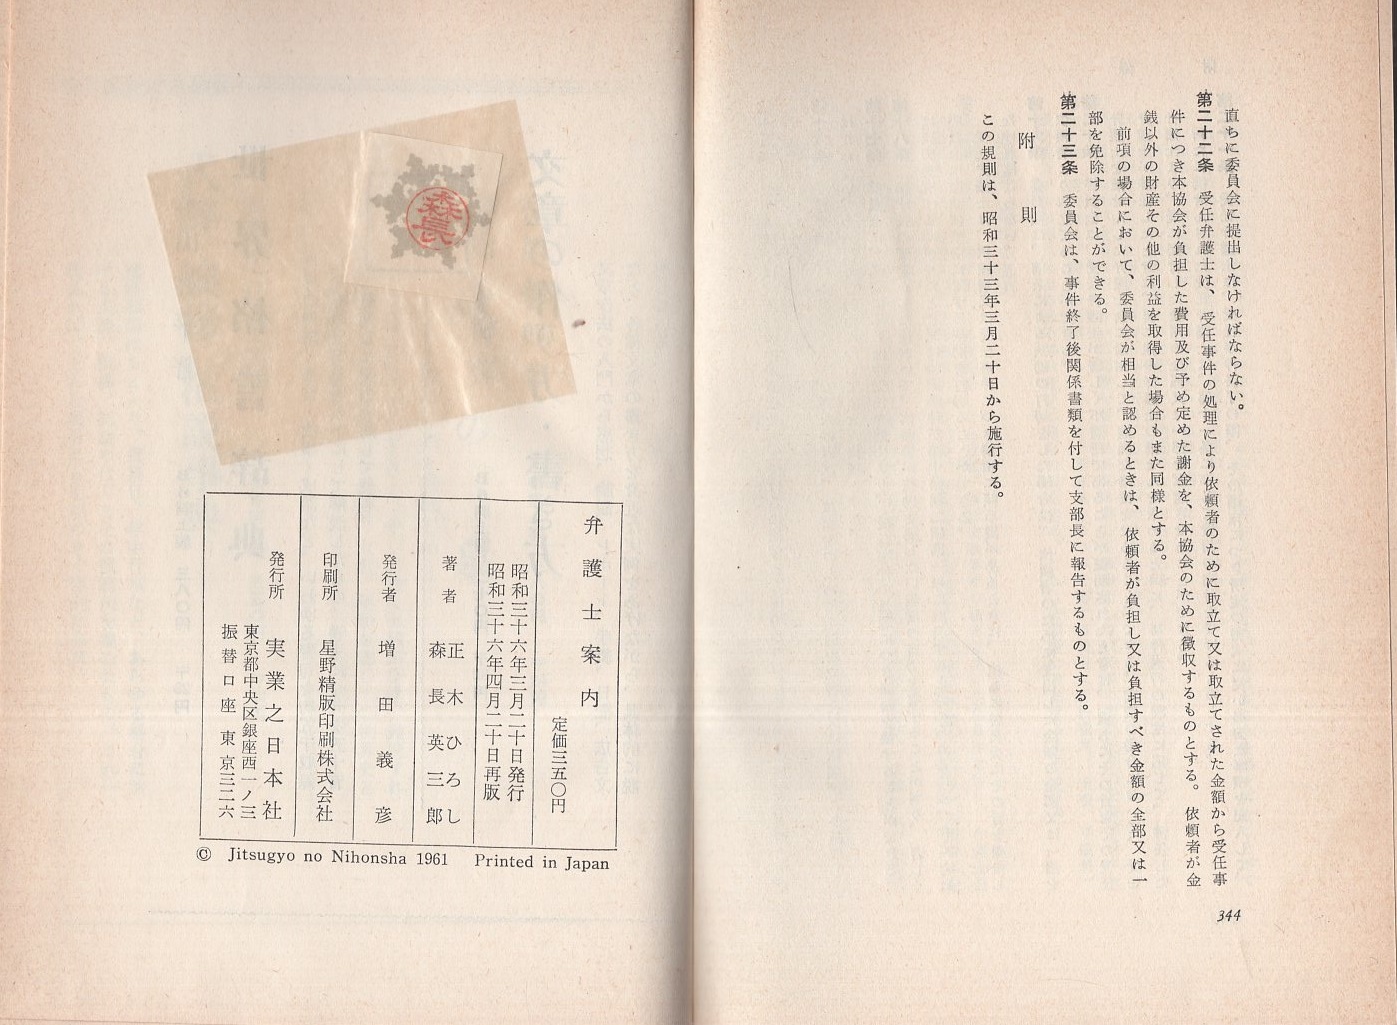 直ちに委員会に提出しなければならない。
第二十二条　受任弁護士は、受任事件の処理により依頼者のために取立て又は取立てされた金額から受任事
件につき本協会が負担した費用及び予め定めた謝金を、本協会のために徴収するものとする。依頼者が金
銭以外の財産その他の利益を取得した場合もまた同様とする。
前項の場合において、委員会が相当と認めるときは、依頼者が負担し又は負担すべき金額の全部又は一
部を免除することができる。
第二十三条　委員会は、事件終了後関係書類を付して支部長に報告するものとする。
附　則
この規則は、昭和三十三年三月二十日から施行する。
344
森長
弁護士案内
定価三五〇円
昭和三十六年三月二十日発行
昭和三十六年四月二十日再版
著者　正木ひろし
森長英三郎
発行者　増田義彦
印刷所　星野精版印刷株式会社
発行所　実業之日本社
東京都中央区銀座西一ノ三
振替口座　東京三二六
© Jitsugyo no Nihonsha 1961　Printed in Japan